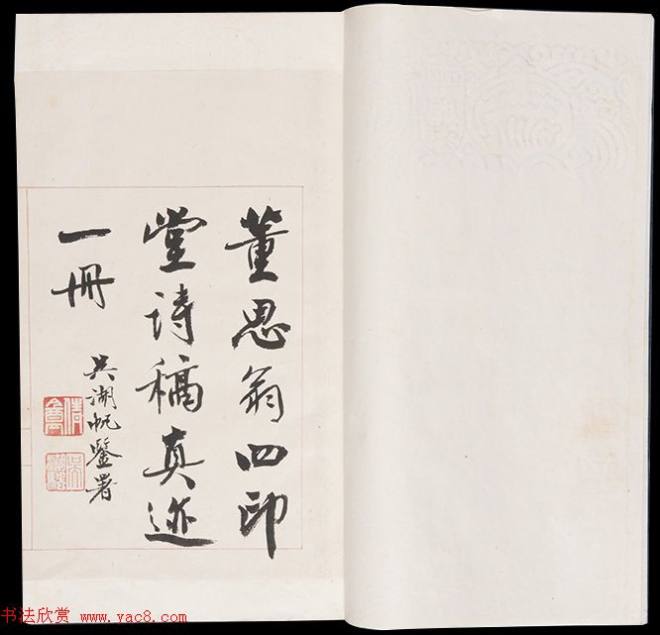 董思翁四印
堂诗稿真迹
一冊
吴湖帆鑒署
书法欣赏 www.yac8.com